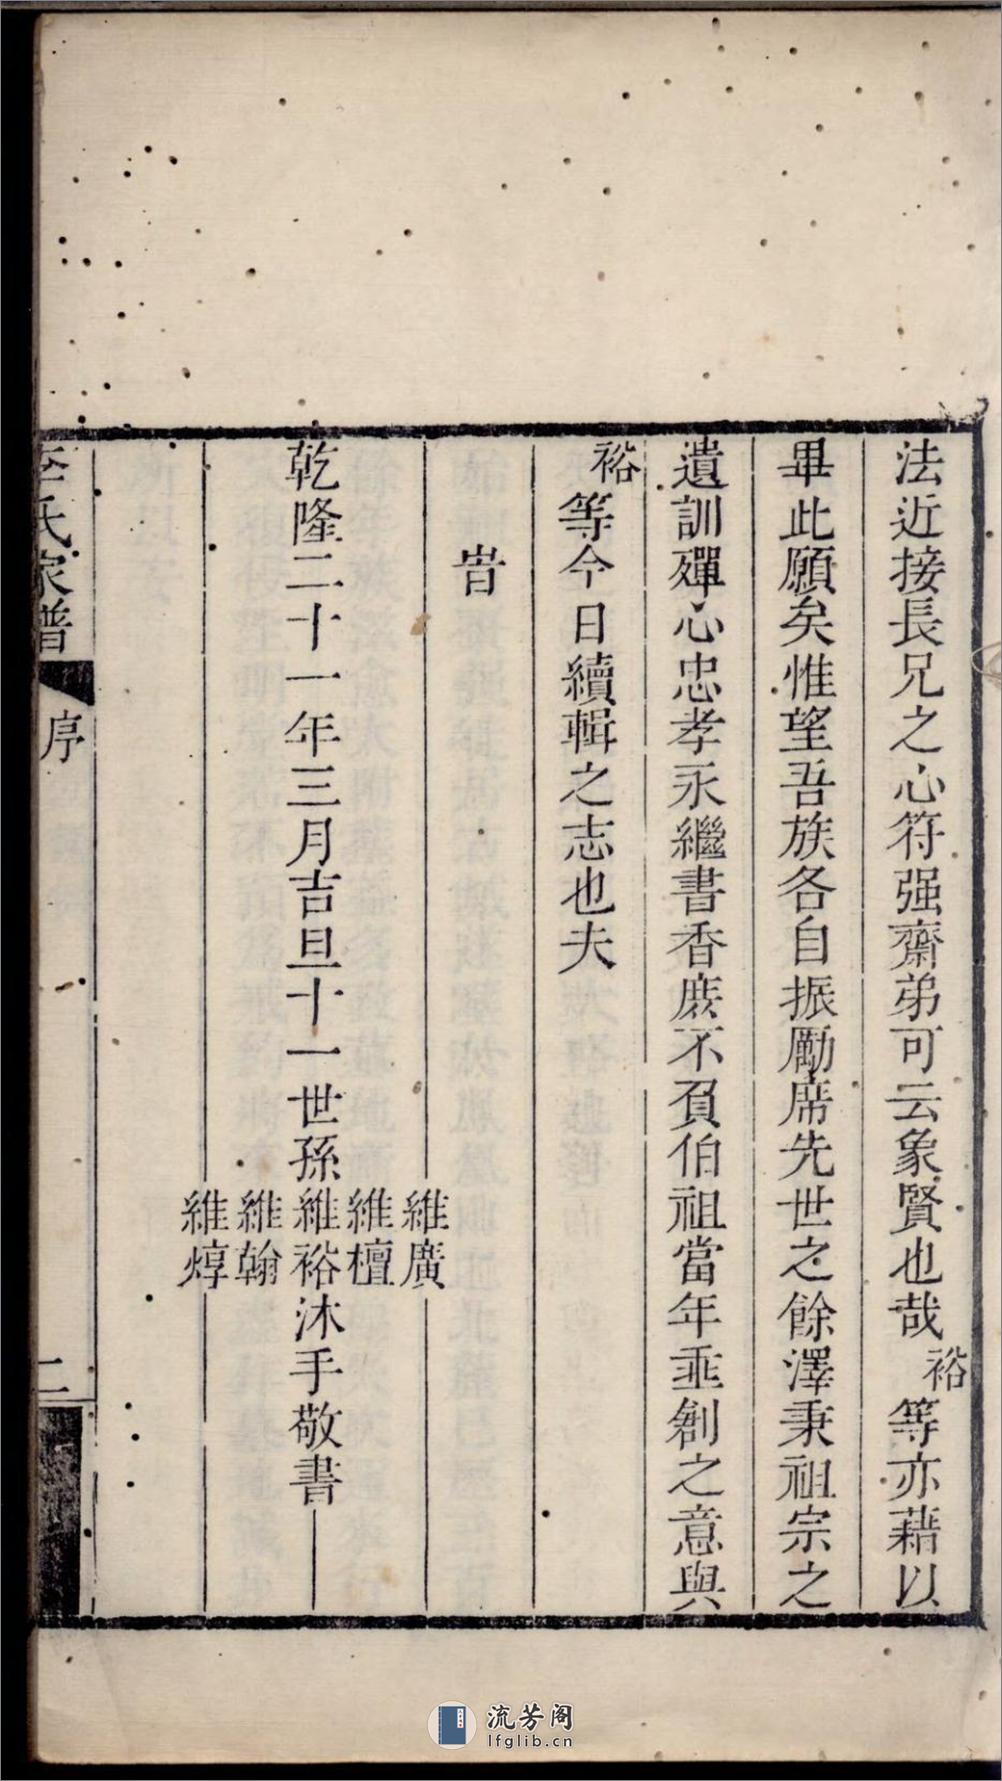 法近接長兄之心符强齋弟可云象賢也哉裕等亦藉以
畢此願矣惟望吾族各自振勵席先世之餘澤秉祖宗之
遺訓殫心忠孝永繼書香庶不負伯祖當年垂創之意與
裕等今日續輯之志也夫
旹
維廣
維檀
乾隆二十一年三月吉旦十一世孫維裕沐手敬書
維翰
維焞
氏家譜
序
二
流芳阁
lfglib.cn